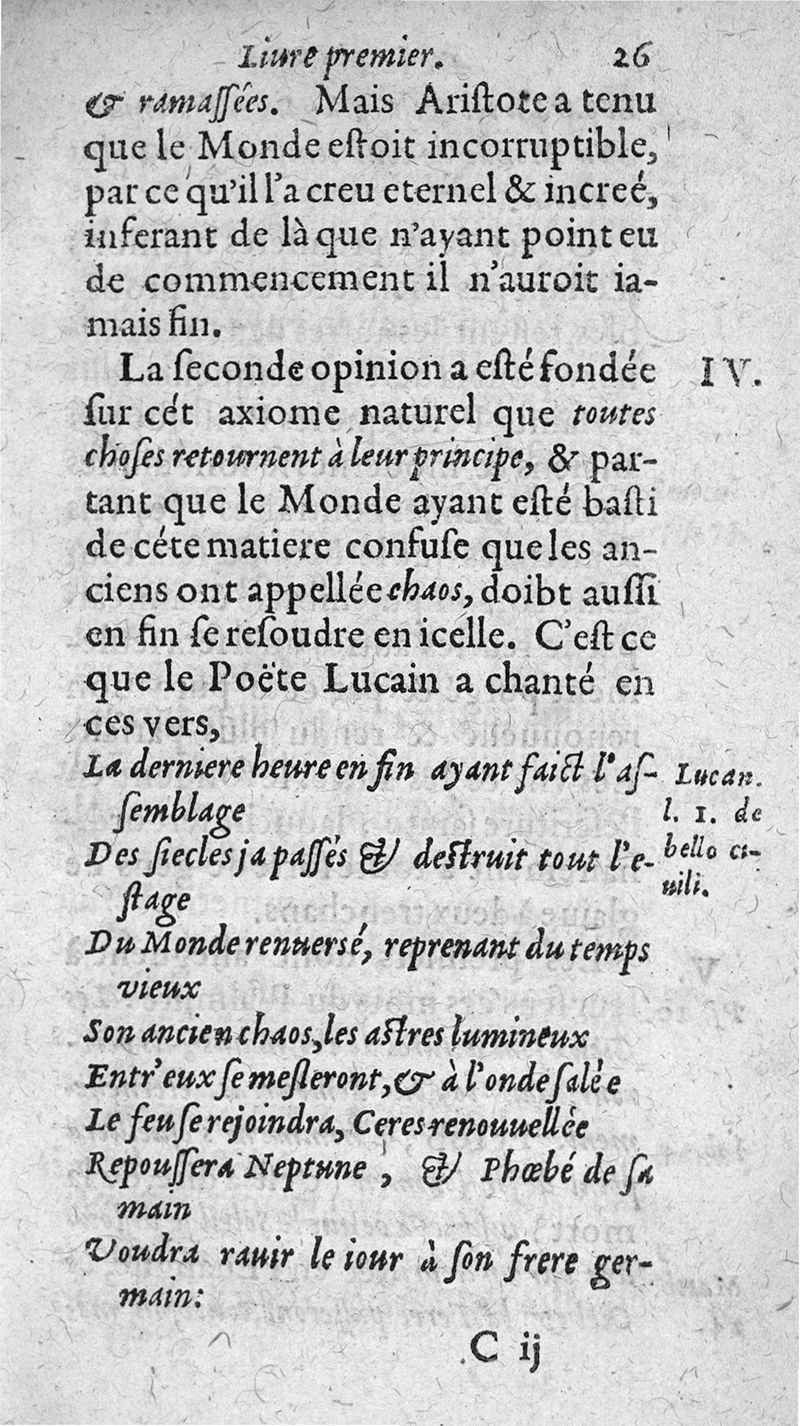 Liure premier. 26
& ramaſſées. Mais Ariſtote a tenu
que le Monde eſtoit incorruptible,
par ce qu'il l'a creu eternel & increé,
inferant de là que n'ayant point eu
de commencement il n'auroit ia-
mais fin.
La ſeconde opinion a eſté fondée
IV.
ſur cét axiome naturel que toutes
choſes retournent à leur principe, & par-
tant que le Monde ayant eſté baſti
de céte matiere confuſe que les an-
ciens ont appellée chaos, doibt auſſi
en fin ſe reſoudre en icelle. C'eſt ce
que le Poëte Lucain a chanté en
ces vers,
La derniere heure en fin ayant faict l'aſ-
ſemblage
Des ſiecles ja paſſés & deſtruit tout l'e-
ſtage
Lucan.
l. 1. de
bello ci-
uili.
Du Monde renuersé, reprenant du temps
vieux
Son ancien chaos, les aſtres lumineux
Entr'eux ſe meſleront, & à l'onde ſalée
Le feu ſe rejoindra, Ceres renouuellée
Repouſſera Neptune, & Phœbé de ſa
main
Voudra rauir le iour à ſon frere ger-
main:
C ij